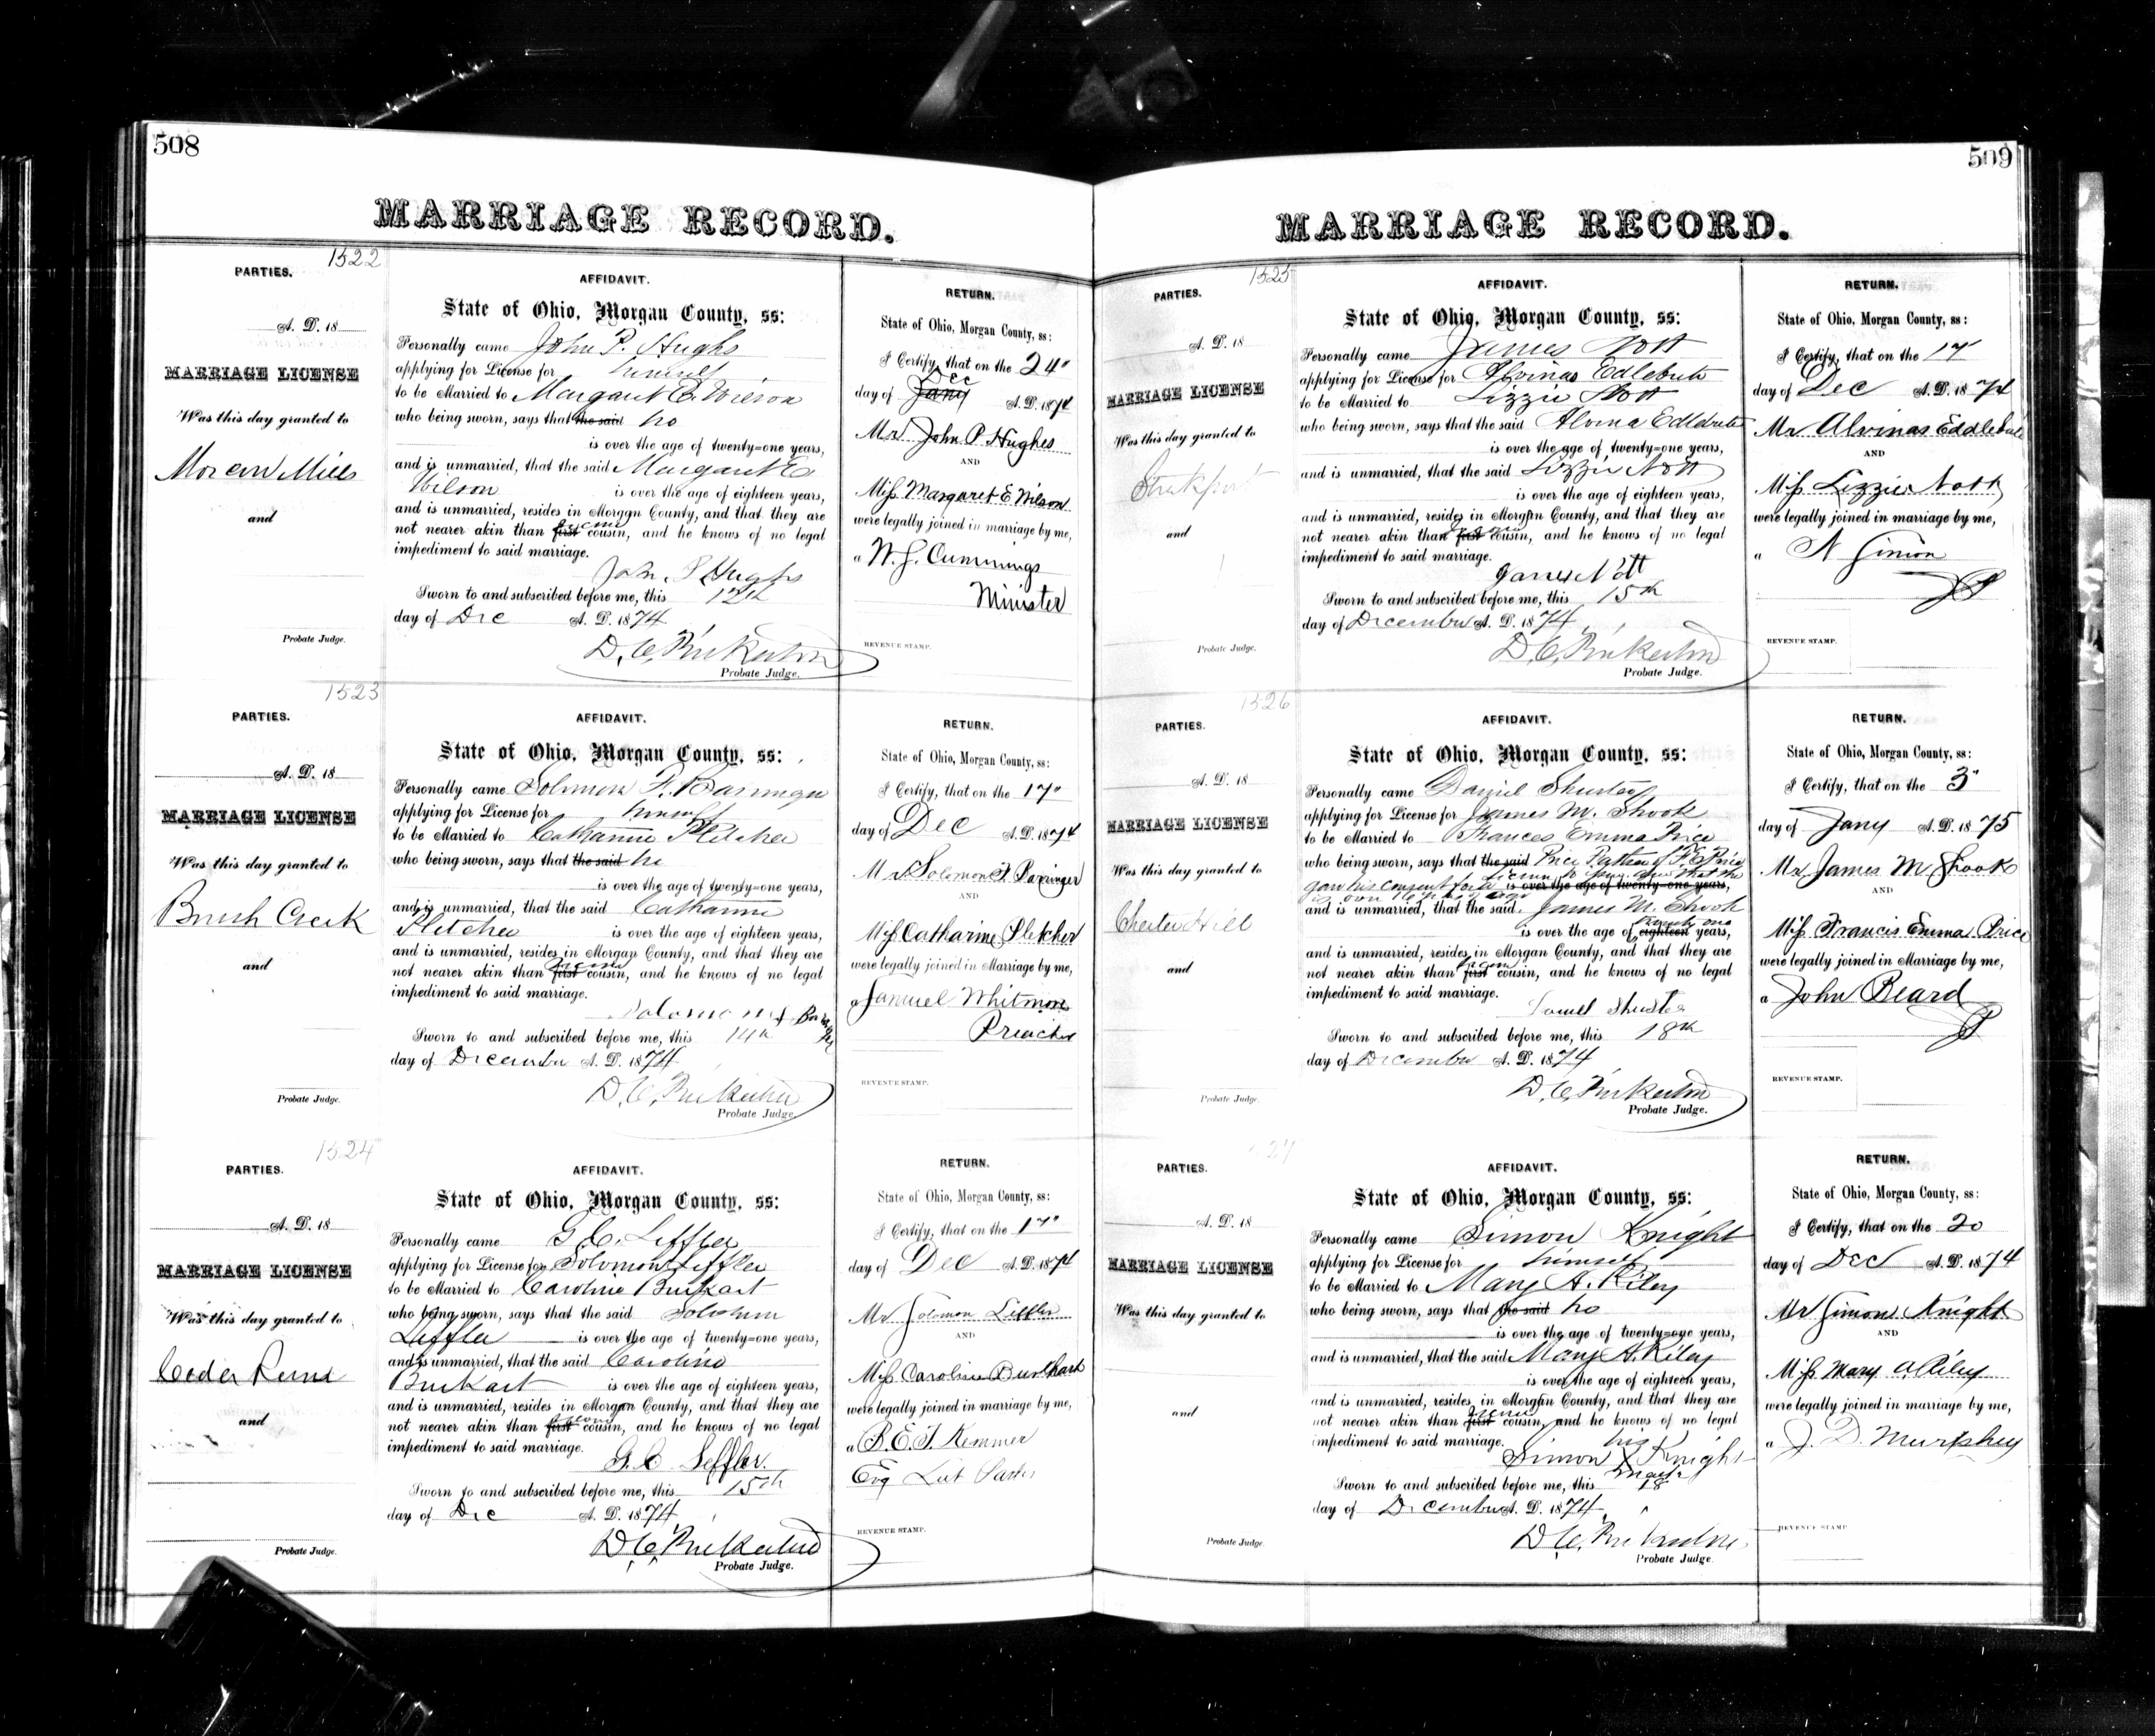 508
MARRIAGE RECORD.
1522
PARTIES.
A. D. 18
MARRIAGE LICENSE
Was this day granted to
and
Probate Judge.
AFFIDAVIT.
State of Ohio, Morgan County, ss:
Personally came John P. Hughs
applying for License for himself
to be Married to Margaret E. Wilson
who being sworn, says that the said he
is over the age of twenty=one years,
and is unmarried, that the said Margaret E
Wilson is over the age of eighteen years,
and is unmarried, resides in Morgan County, and that they are
not nearer akin than first second cousin, and he knows of no legal
impediment to said marriage.
John P Hughs
Sworn to and subscribed before me, this 12th
day of Dec A. D. 1874
D. C. Pinkerton
Probate Judge.
RETURN.
State of Ohio, Morgan County, ss:
I Certify, that on the 24"
day of Jany Dec A. D. 1874
Mr John P. Hughes
AND
Miss Margaret E Wilson
were legally joined in marriage by me,
a W. J. Cummings
Minister
REVENUE STAMP.
1523
PARTIES.
A. D. 18
MARRIAGE LICENSE
Was this day granted to
Brush Creek
and
Probate Judge.
AFFIDAVIT.
State of Ohio, Morgan County, ss:
Personally came Solomon F. Barringer
applying for License for himself
to be Married to Catharine Pletcher
who being sworn, says that the said he
is over the age of twenty=one years,
and is unmarried, that the said Catharine
Pletcher is over the age of eighteen years,
and is unmarried, resides in Morgan County, and that they are
not nearer akin than first second cousin, and he knows of no legal
impediment to said marriage.
Solomon
Sworn to and subscribed before me, this 14th
day of December A. D. 1874
D. C. Pinkerton
Probate Judge.
RETURN.
State of Ohio, Morgan County, ss:
I Certify, that on the 17"
day of Dec A. D. 1874
Mr Solomon F Barringer
AND
Miss Catharine Pletcher
were legally joined in Marriage by me,
a Samuel Whitmore
Preacher
REVENUE STAMP.
1524
PARTIES.
A. D. 18
MARRIAGE LICENSE
Was this day granted to
Ceder Runn
and
Probate Judge.
AFFIDAVIT.
State of Ohio, Morgan County, ss:
Personally came G. C. Leffler
applying for License for Solomon Leffler
to be Married to Caroline Burkart
who being sworn, says that the said Solomon
Leffler is over the age of twenty=one years,
and is unmarried, that the said Caroline
Burkart is over the age of eighteen years,
and is unmarried, resides in Morgan County, and that they are
not nearer akin than first second cousin, and he knows of no legal
impediment to said marriage.
G. C Leffler.
Sworn to and subscribed before me, this 15th
day of Dec A. D. 1874
D. C. Pinkerton
Probate Judge.
RETURN.
State of Ohio, Morgan County, ss:
I Certify, that on the 17"
day of Dec A. D. 1874
Mr Solomon Leffler
AND
Miss Caroline Burkhart
were legally joined in marriage by me,
a R. E. J. Kemmer
REVENUE STAMP.
509
MARRIAGE RECORD.
1525
PARTIES.
A. D. 18
MARRIAGE LICENSE
Was this day granted to
and
Probate Judge.
AFFIDAVIT.
State of Ohio, Morgan County, ss:
Personally came James Nott
applying for License for Alvinas Edlebute
to be Married to Lizzie Nott
who being sworn, says that the said Alvina Edlebute
is over the age of twenty=one years,
and is unmarried, that the said Lizzie Nott
is over the age of eighteen years,
and is unmarried, resides in Morgan County, and that they are
not nearer akin than first second cousin, and he knows of no legal
impediment to said marriage.
James Nott
Sworn to and subscribed before me, this 15th
day of December A. D. 1874
D. C. Pinkerton
Probate Judge.
RETURN.
State of Ohio, Morgan County, ss:
I Certify, that on the 17
day of Dec A. D. 1874
Mr Alvinas Eddlebute
AND
Miss Lizzie Nott
were legally joined in marriage by me,
a N Simon
JP
REVENUE STAMP.
1526
PARTIES.
A. D. 18
MARRIAGE LICENSE
Was this day granted to
Chester Hill
and
Probate Judge.
AFFIDAVIT.
State of Ohio, Morgan County, ss:
Personally came Daniel Shuster
applying for License for James M. Shook
to be Married to Frances Emma Price
who being sworn, says that the said Price Father of F. E. Price
gave his consent for
is over the age of twenty=one years,
and is unmarried, that the said James M. Shook
is over the age of eighteen twenty one years,
and is unmarried, resides in Morgan County, and that they are
not nearer akin than first second cousin, and he knows of no legal
impediment to said marriage.
Daniel Shuster
Sworn to and subscribed before me, this 18th
day of December A. D. 1874
D. C. Pinkerton
Probate Judge.
RETURN.
State of Ohio, Morgan County, ss:
I Certify, that on the 3"
day of Jany A. D. 1875
Mr James M Shook
AND
Miss Francis Emma Price
were legally joined in Marriage by me,
a John Beard
JP
REVENUE STAMP.
27
PARTIES.
A. D. 18
MARRIAGE LICENSE
Was this day granted to
and
Probate Judge.
AFFIDAVIT.
State of Ohio, Morgan County, ss:
Personally came Simon Knight
applying for License for himself
to be Married to Mary A. Riley
who being sworn, says that the said he
is over the age of twenty=one years,
and is unmarried, that the said Mary A. Riley
is over the age of eighteen years,
and is unmarried, resides in Morgan County, and that they are
not nearer akin than first second cousin, and he knows of no legal
impediment to said marriage.
his
Simon X Knight
mark
Sworn to and subscribed before me, this 18
day of December A. D. 1874
D. C. Pinkerton
Probate Judge.
RETURN.
State of Ohio, Morgan County, ss:
I Certify, that on the 20
day of Dec A. D. 1874
Mr Simon Knight
AND
Miss Mary A. Riley
were legally joined in marriage by me,
a J. D. Murphey
REVENUE STAMP